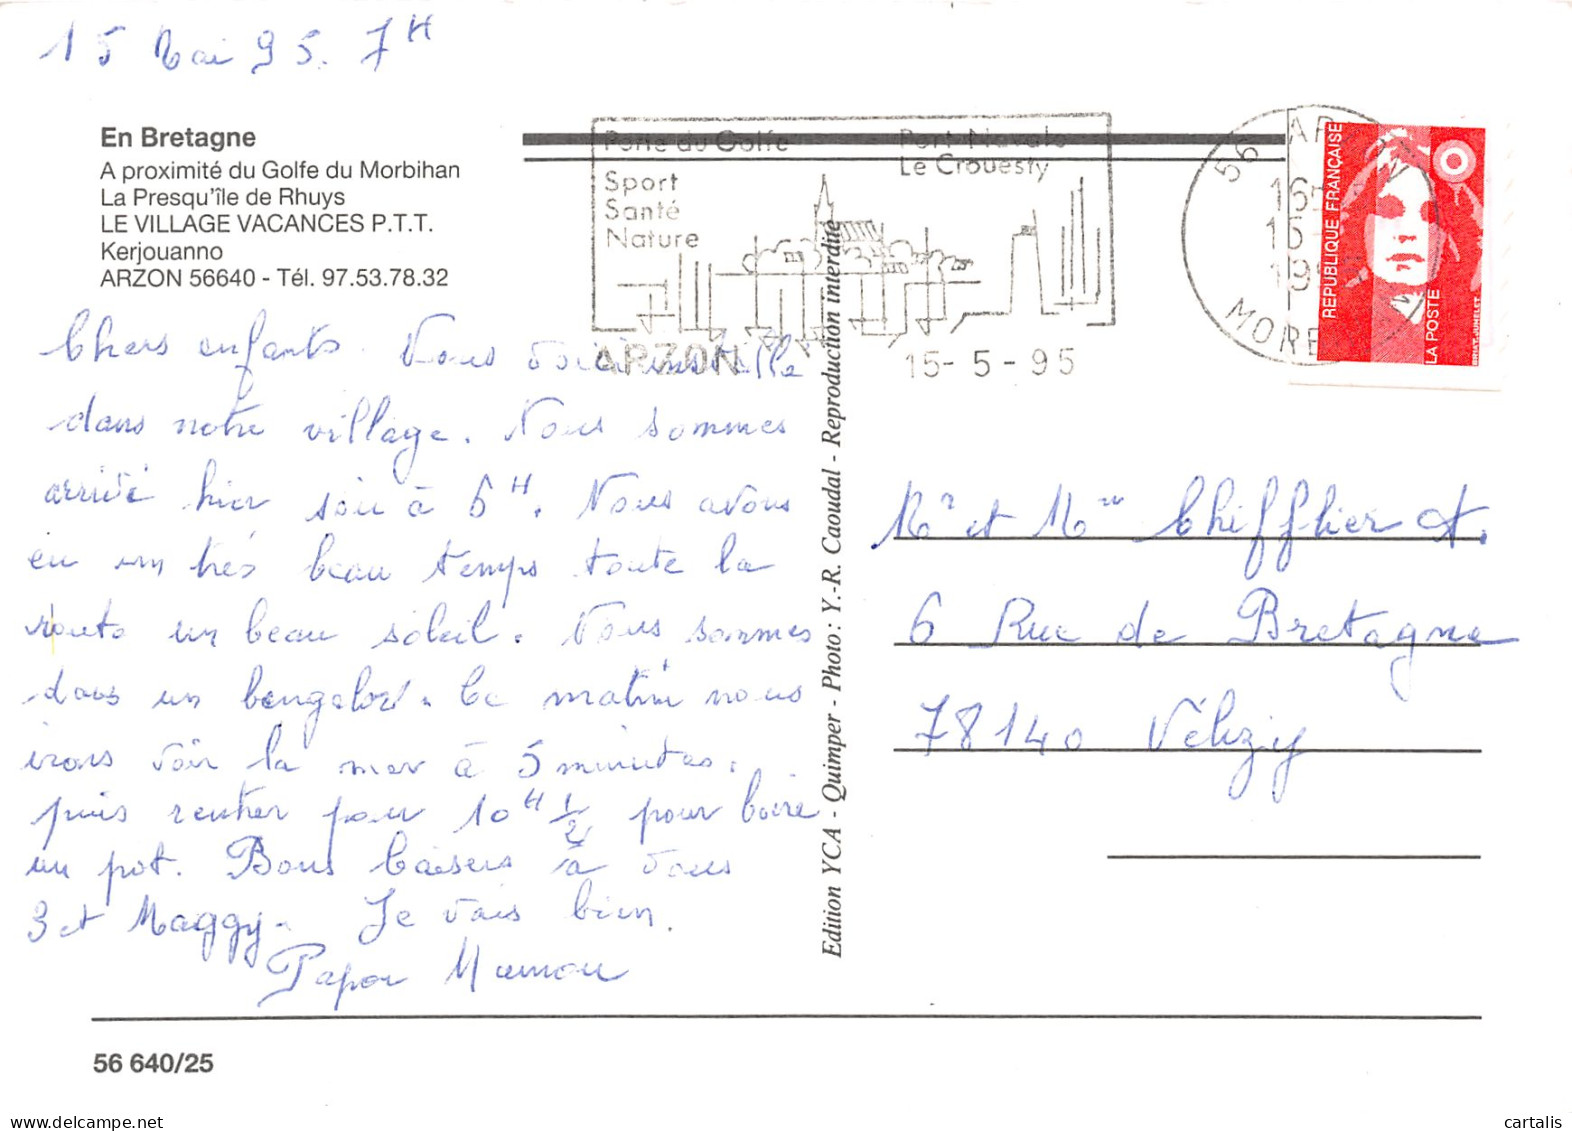 15 Mai 95. 7H
En Bretagne
A proximité du Golfe du Morbihan
La Presqu'île de Rhuys
LE VILLAGE VACANCES P.T.T.
Kerjouanno
ARZON 56640 - Tél. 97.53.78.32
Porte du Golfe
Port Navalo
Le Crouesty
Sport
Santé
Nature
ARZON
15-5-95
56 ARZON
16
15
19
MORB
REPUBLIQUE FRANÇAISE
LA POSTE
BRIAT-JUMELET
Chers enfants. Nous voici installe
dans notre village. Nous sommes
arrivé hier soir à 6H. Nous avons
eu un très beau temps toute la
route un beau soleil. Nous sommes
dans un bengalow. Ce matin nous
irons voir la mer à 5 minutes.
puis rentrer pour 10H 1/2 pour boire
un pot. Bons baisers à vous
3 et Maggy. Je vais bien.
Papou Mamou
Edition YCA - Quimper - Photo : Y.-R. Caoudal - Reproduction interdite
Mr et Mme Chifflier A.
6 Rue de Bretagne
78140 Vélizy
56 640/25
cartalis